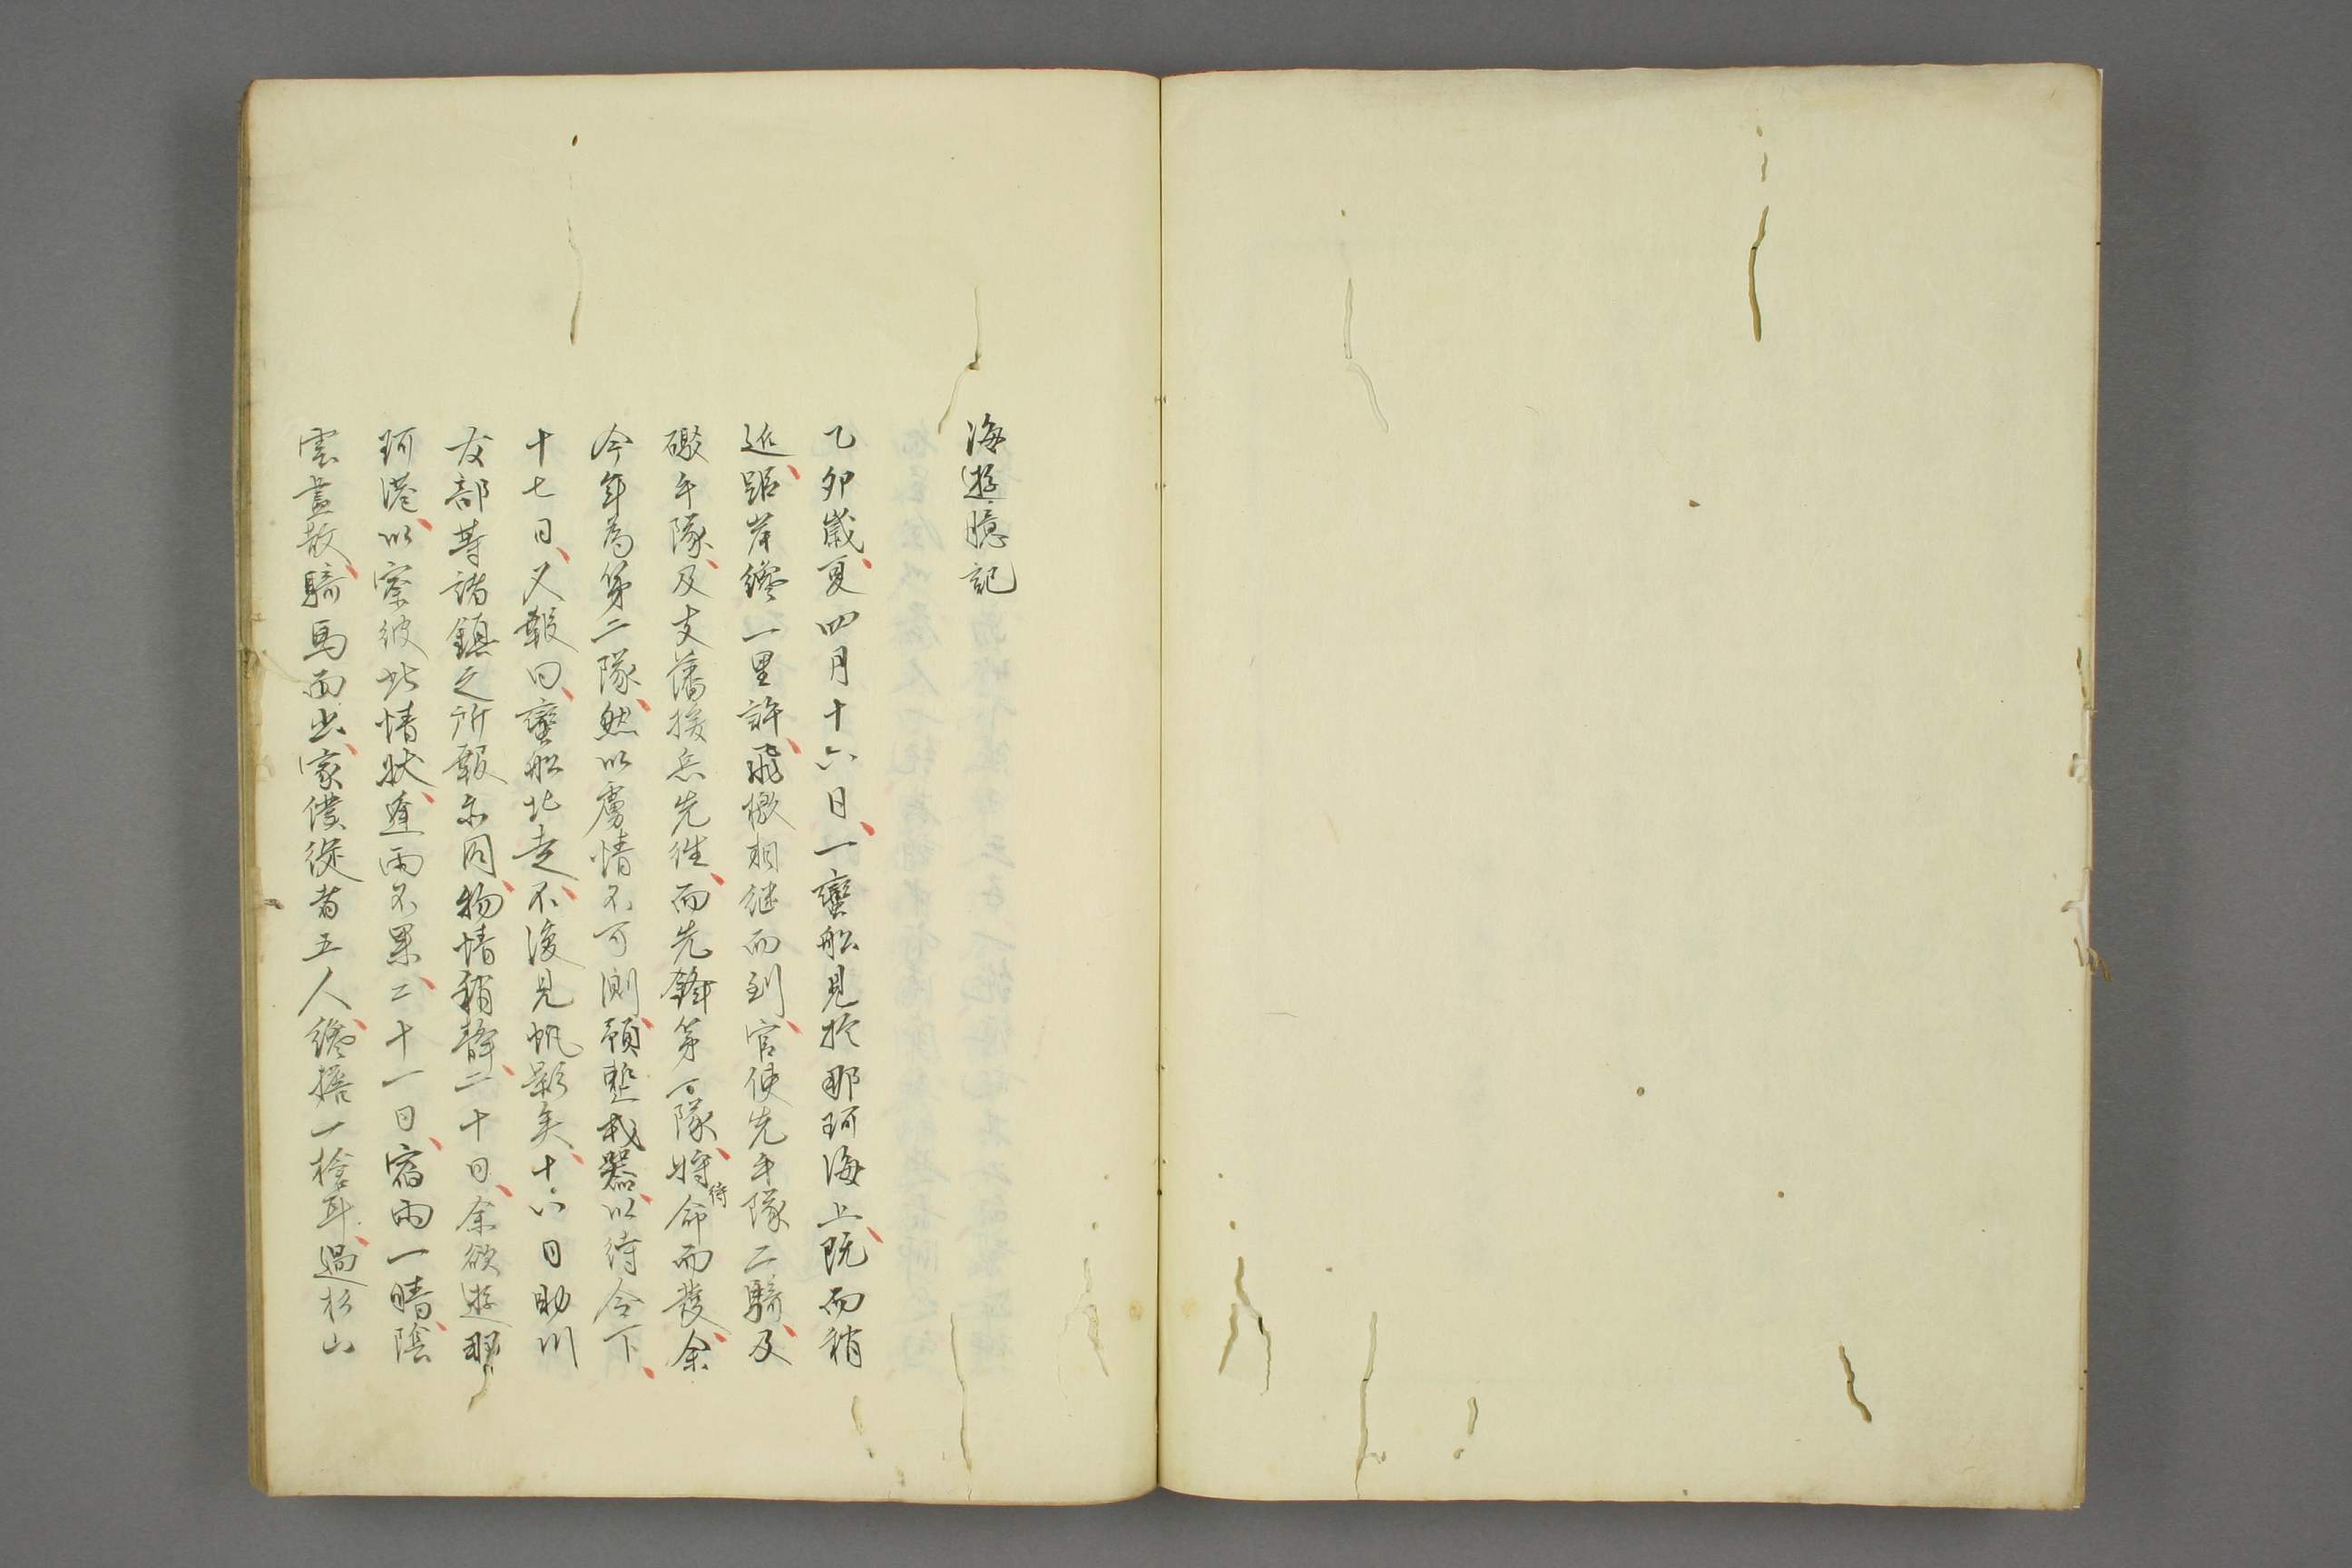 海遊臆記
乙卯歳、夏四月十六日、一蠻舩見於那珂海上、既而稍
近、距岸纔一里許、飛檄相継而到、官使先手隊二騎、及
礟手隊、及支藩援兵先徃、而先鋒第一隊、將待命而發、余
今年為第二隊、然以虜情不可測、頓整戎器、以待令下、
十七日、又報曰、蠻舩北走、不復見帆影矣、十八日助川
友部等諸鎮之所報亦同、物情稍静、二十日、余欲遊那
珂港、以察彼此情状、逢雨不果、二十一日、宿雨一晴、陰
雲盡散、騎馬而出、家僕從者五人、纔携一槍耳、過杉山